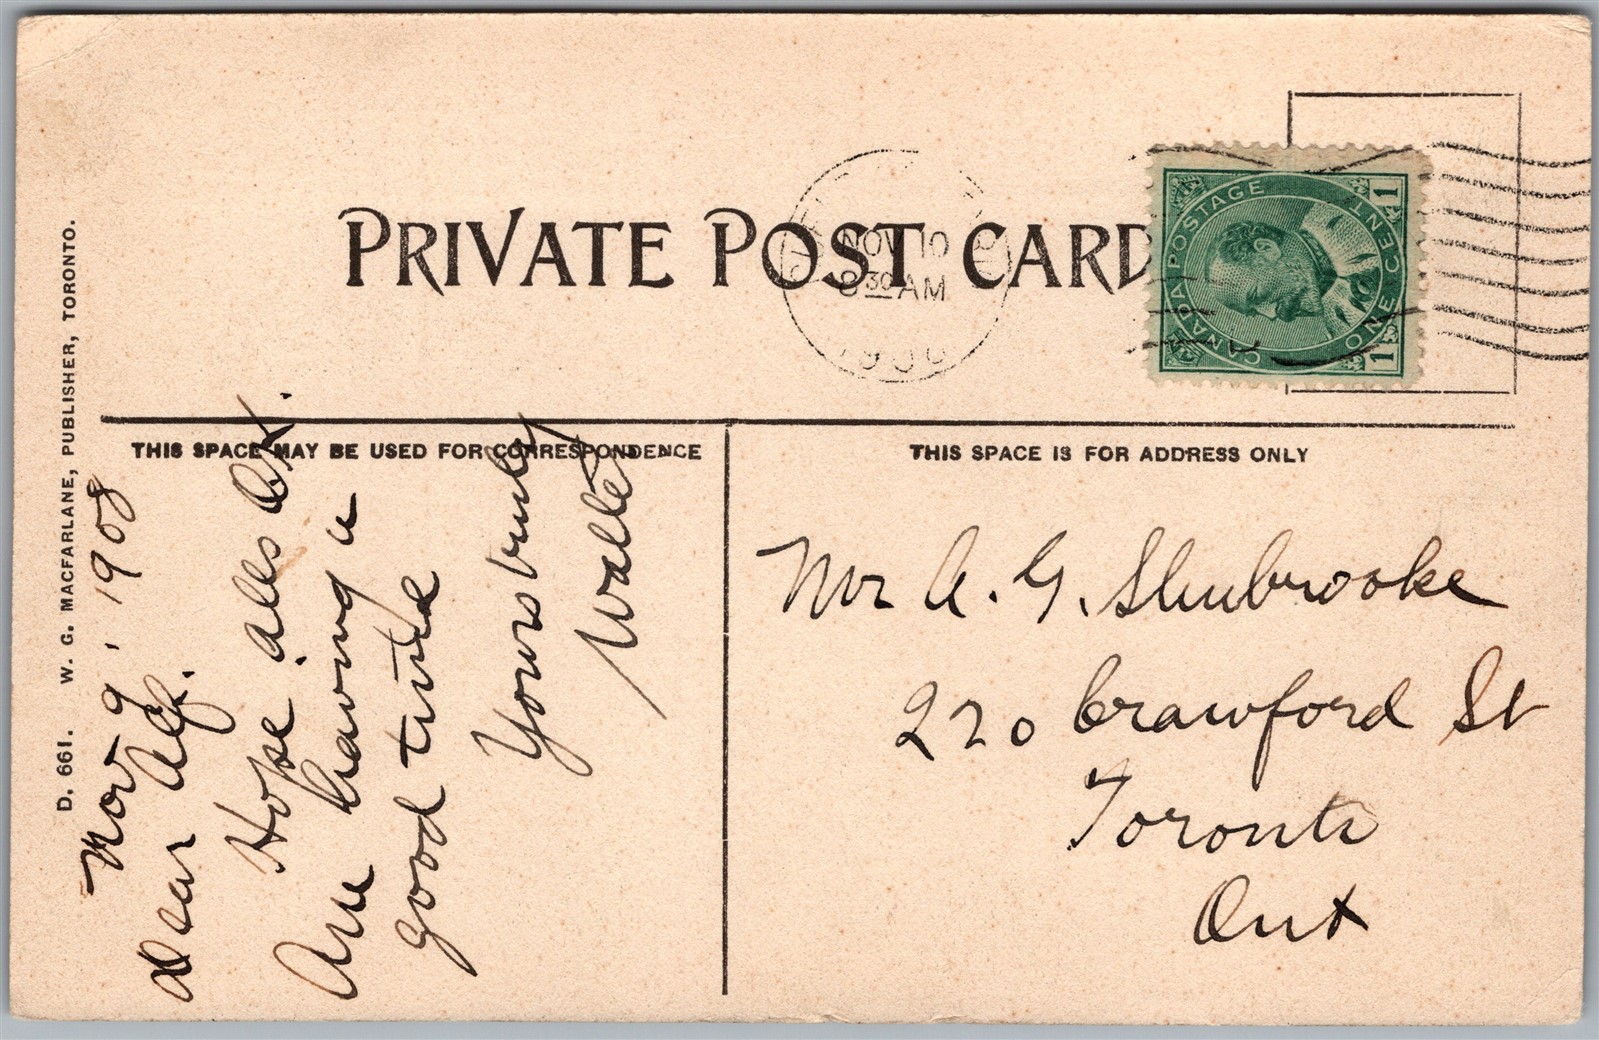 PRIVATE POST CARD
NOV 10
8 30 AM
CANADA POSTAGE
ONE CENT
1
1
THIS SPACE MAY BE USED FOR CORRESPONDENCE
THIS SPACE IS FOR ADDRESS ONLY
D. 661. W. G. MACFARLANE, PUBLISHER, TORONTO.
Nov 9, 1908
Dear Alf.
Hope alls O.K.
Am having a
good time
Yours truly
Walter
Mr A. G. Shubrooke
220 Crawford St
Toronto
Ont